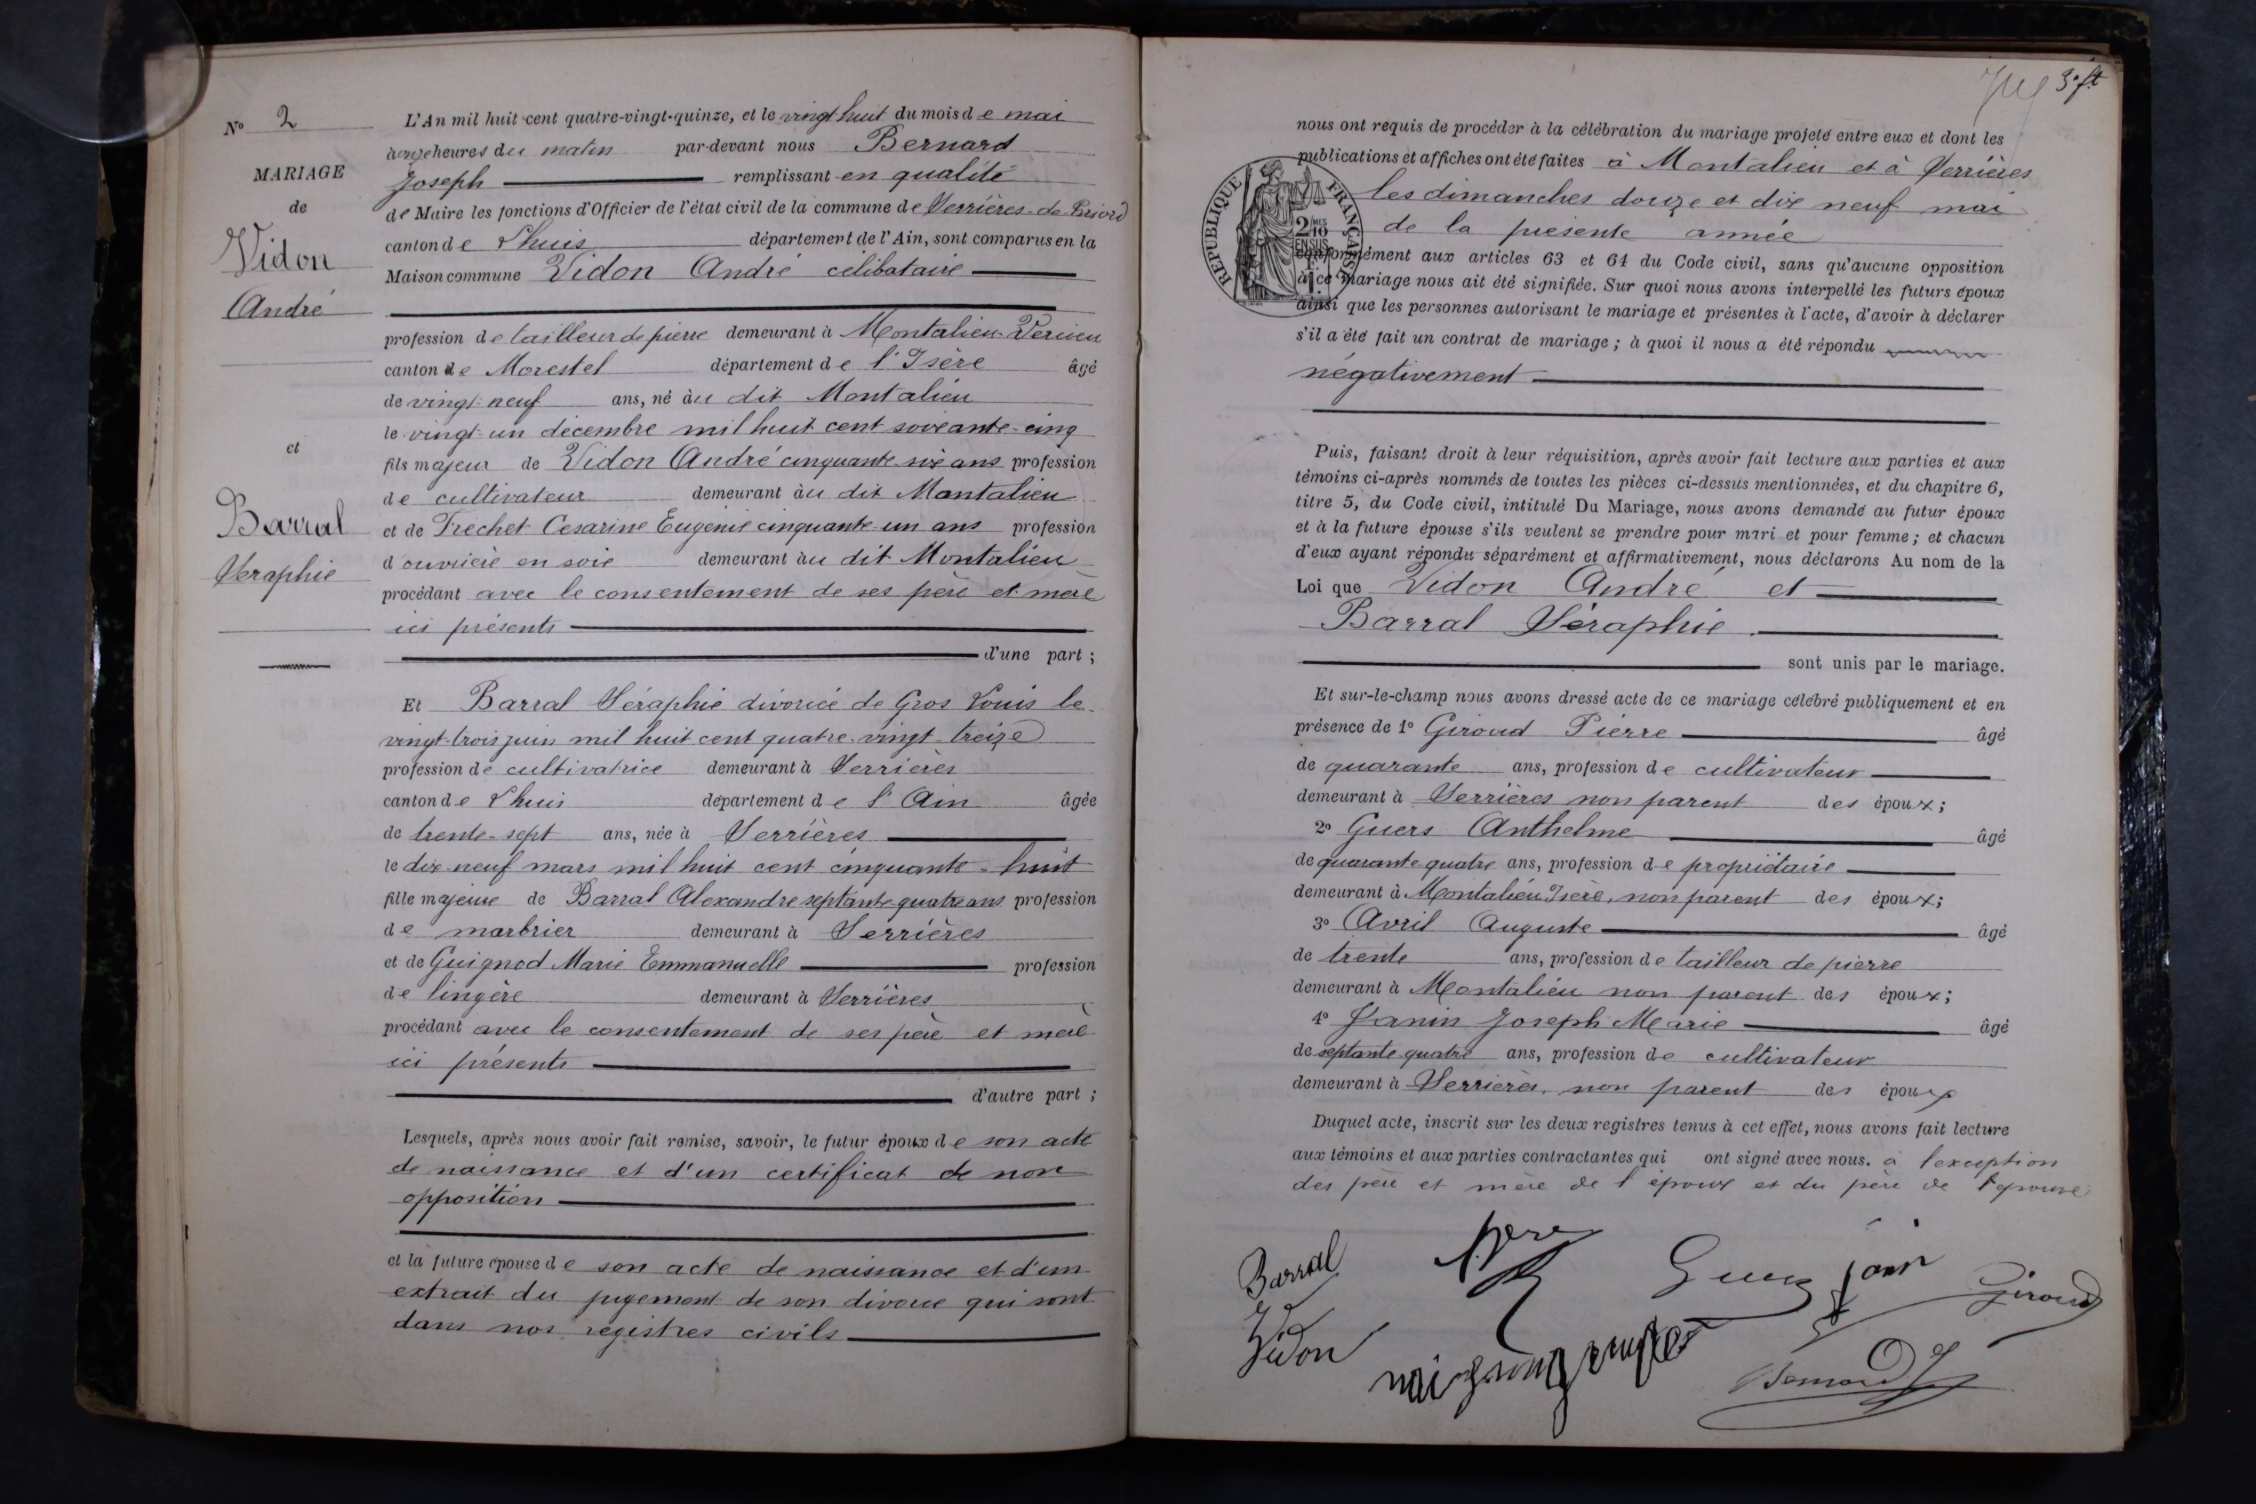 N° 2
MARIAGE
de
Vidon
André
et
Barral
Séraphie
L'An mil huit cent quatre-vingt-quinze, et le vingt huit du mois de mai
à onze heures du matin par-devant nous Bernard
Joseph remplissant en qualité
de Maire les fonctions d'Officier de l'état civil de la commune de Serrières-de-Briord
canton de Lhuis département de l'Ain, sont comparus en la
Maison commune Vidon André célibataire
profession de tailleur de pierre demeurant à Montalieu-Vercieu
canton de Morestel département de l'Isère âgé
de vingt-neuf ans, né au dit Montalieu
le vingt-un décembre mil huit cent soixante-cinq
fils majeur de Vidon André cinquante six ans profession
de cultivateur demeurant au dit Montalieu
et de Trechet Cesarine Eugénie cinquante-un ans profession
d'ouvrière en soie demeurant au dit Montalieu
procédant avec le consentement de ses père et mère
ici présents
d'une part ;
Et Barral Séraphie divorcé de Gros Louis le
vingt-trois juin mil huit cent quatre-vingt-treize
profession de cultivatrice demeurant à Serrières
canton de Lhuis département de l'Ain âgée
de trente-sept ans, née à Serrières
le dix neuf mars mil huit cent cinquante-huit
fille majeure de Barral Alexandre septante quatre ans profession
de marbrier demeurant à Serrières
et de Guignod Marie Emmanuelle profession
de lingère demeurant à Serrières
procédant avec le consentement de ses père et mère
ici présents
d'autre part ;
Lesquels, après nous avoir fait remise, savoir, le futur époux de son acte
de naissance et d'un certificat de non
opposition
et la future épouse de son acte de naissance et d'un
extrait du jugement de son divorce qui sont
dans nos registres civils
3. ft
nous ont requis de procéder à la célébration du mariage projeté entre eux et dont les
publications et affiches ont été faites à Montalieu et à Serrières
les dimanches douze et dix neuf mai
de la présente année
conformément aux articles 63 et 64 du Code civil, sans qu'aucune opposition
à ce mariage nous ait été signifiée. Sur quoi nous avons interpellé les futurs époux
ainsi que les personnes autorisant le mariage et présentes à l'acte, d'avoir à déclarer
s'il a été fait un contrat de mariage ; à quoi il nous a été répondu
négativement
RÉPUBLIQUE FRANÇAISE
2/10 EN SUS
Puis, faisant droit à leur réquisition, après avoir fait lecture aux parties et aux
témoins ci-après nommés de toutes les pièces ci-dessus mentionnées, et du chapitre 6,
titre 5, du Code civil, intitulé Du Mariage, nous avons demandé au futur époux
et à la future épouse s'ils veulent se prendre pour mari et pour femme ; et chacun
d'eux ayant répondu séparément et affirmativement, nous déclarons Au nom de la
Loi que Vidon André et
Barral Séraphie
sont unis par le mariage.
Et sur-le-champ nous avons dressé acte de ce mariage célébré publiquement et en
présence de 1° Giroud Pierre âgé
de quarante ans, profession de cultivateur
demeurant à Serrières non parent des époux ;
2° Guers Anthelme âgé
de quarante quatre ans, profession de propriétaire
demeurant à Montalieu Isère, non parent des époux ;
3° Avril Auguste âgé
de trente ans, profession de tailleur de pierre
demeurant à Montalieu non parent des époux ;
4° Janin Joseph Marie âgé
de septante-quatre ans, profession de cultivateur
demeurant à Serrières, non parent des époux
Duquel acte, inscrit sur les deux registres tenus à cet effet, nous avons fait lecture
aux témoins et aux parties contractantes qui ont signé avec nous. à l'exception
des père et mère de l'époux et du père de l'épouse
Barral
Guers
Janin
Giroud
Vidon
Bernard J